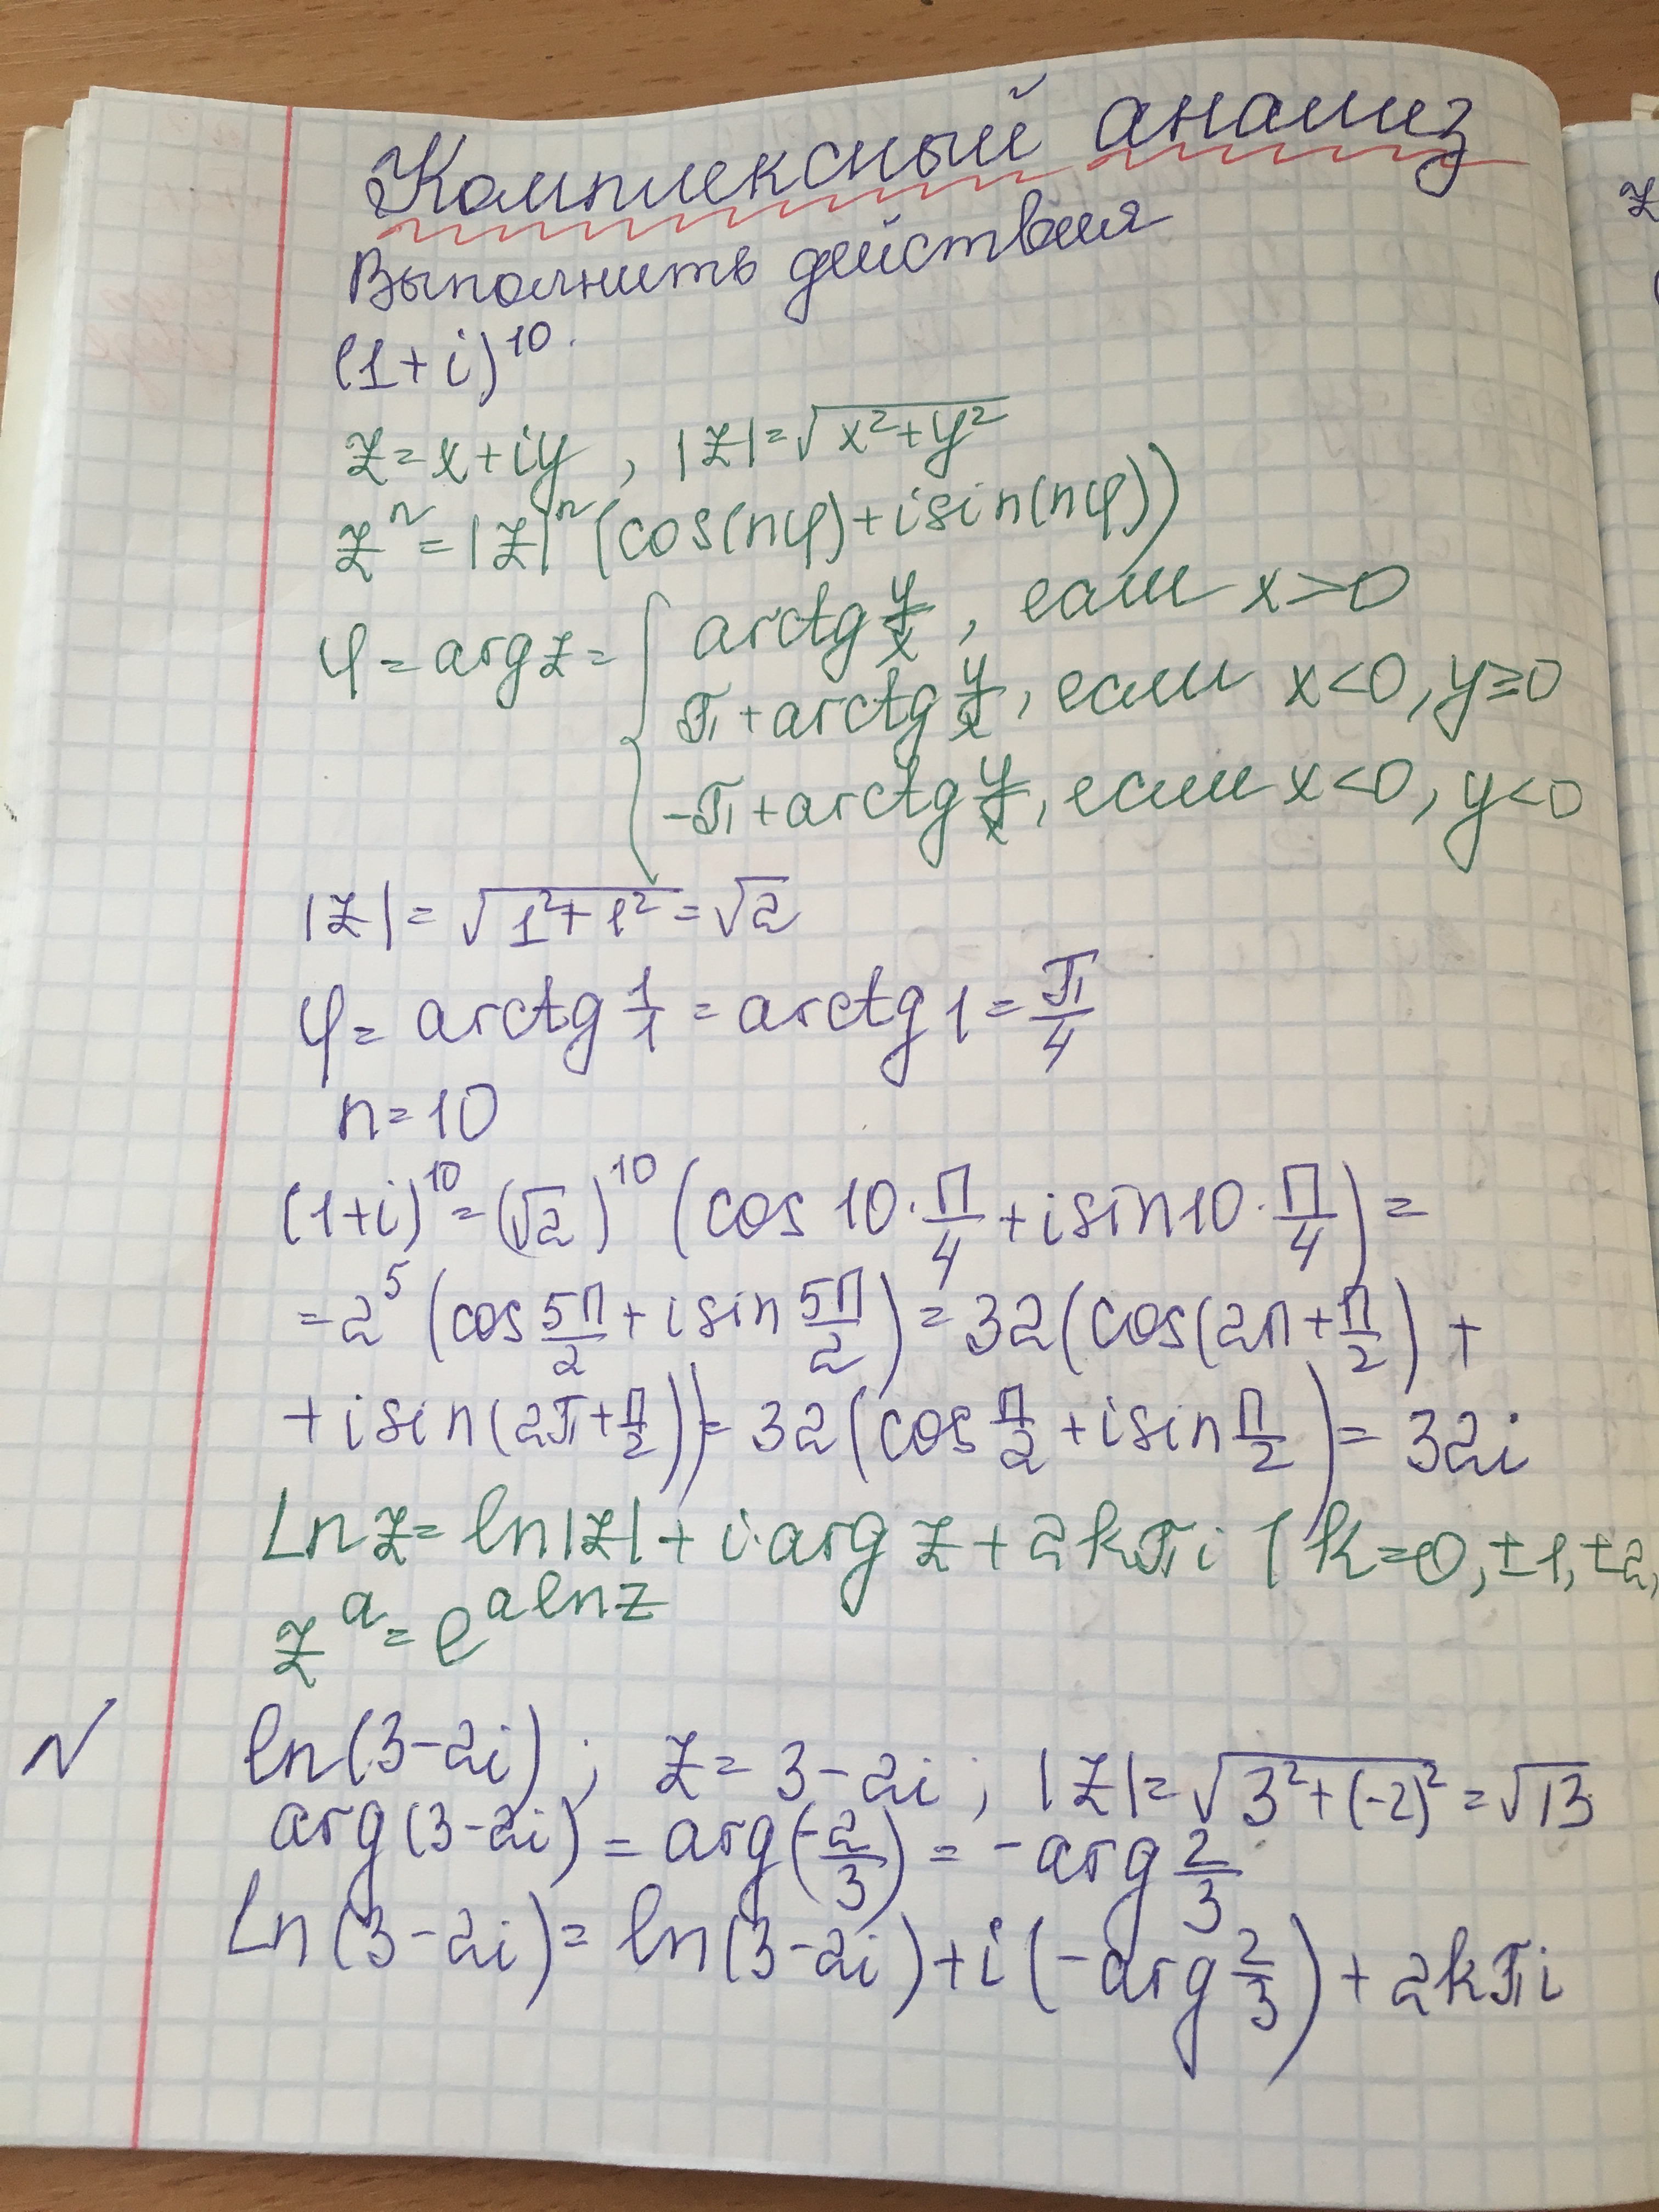 Комплексный анализ
Выполнить действия
(1+i)^10.
z=x+iy, |z|=√(x²+y²)
z^n=|z|^n(cos(nφ)+isin(nφ))
φ=arg z= { arctg y/x, если x>0
π+arctg y/x, если x<0, y≥0
-π+arctg y/x, если x<0, y<0
|z|=√(1²+1²)=√2
φ=arctg 1/1=arctg 1=π/4
n=10
(1+i)^10=(√2)^10(cos 10·π/4+isin10·π/4)=
=2^5(cos 5π/2+isin 5π/2)=32(cos(2π+π/2)+
+isin(2π+π/2))=32(cos π/2+isin π/2)=32i
Ln z=ln|z|+i·arg z+2kπi (k=0,±1,±2,
z^a=e^(a ln z)
√ ln(3-2i); z=3-2i; |z|=√(3²+(-2)²)=√13
arg(3-2i)=arg(-2/3)=-arg 2/3
Ln(3-2i)=ln(3-2i)+i(-arg 2/3)+2kπi
z